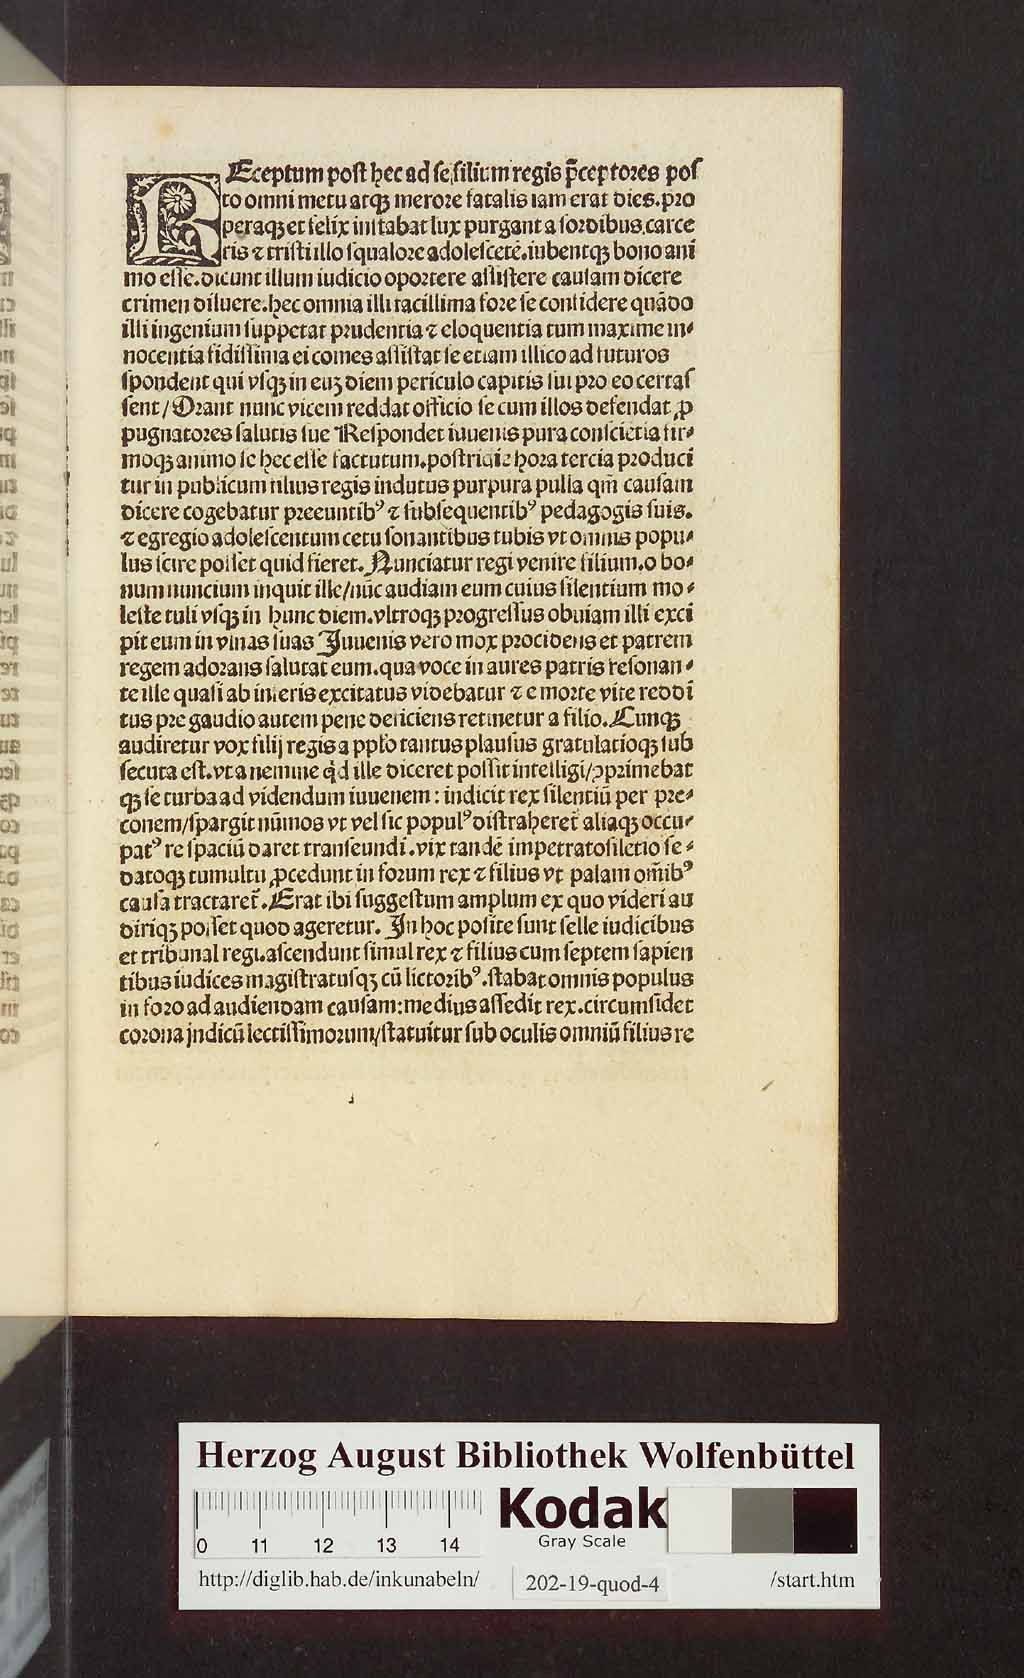 REceptum post hec ad se filium regis p̃ceptores pos
to omni metu atqꝫ merore fatalis iam erat dies. pro
peraqꝫ et felix instabat lux purgant a sordibus. carce
ris ⁊ tristi illo squalore adolescetẽ. iubentqꝫ bono ani
mo esse. dicunt illum iudicio oportere assistere causam dicere
crimen diluere. hec omnia illi facillima fore se confidere quãdo
illi ingenium suppetat prudentia ⁊ eloquentia tum maxime in⸗
nocentia fidissima ei comes assistat se etiam illico ad futuros
spondent qui vsqꝫ in euꝫ diem periculo capitis sui pro eo certas
sent / Orant nunc vicem reddat officio se cum illos defendat ꝓ
pugnatores salutis sue Respondet iuuenis pura conscietia fir⸗
moqꝫ animo se hec esse facturum. postridie hora tercia produci
tur in publicum filius regis indutus purpura pulla qm̃ causam
dicere cogebatur preeuntibꝰ ⁊ subsequentibꝰ pedagogis suis.
⁊ egregio adolescentum cetu sonantibus tubis vt omnis popu⸗
lus scire posset quid fieret. Nunciatur regi venire filium. o bo⸗
num nuncium inquit ille / nũc audiam eum cuius silentium mo⸗
leste tuli vsqꝫ in hunc diem. vltroqꝫ progressus obuiam illi exci
pit eum in vlnas suas Iuuenis vero mox procidens et patrem
regem adorans salutat eum. qua voce in aures patris resonan⸗
te ille quasi ab inferis excitatus videbatur ⁊ e morte vite reddi
tus pre gaudio autem pene deficiens retinetur a filio. Cunqꝫ
audiretur vox filij regis a pplo tantus plausus gratulatioqꝫ sub
secuta est. vt a nemine qd ille diceret possit intelligi / ꝯprimebat
qꝫ se turba ad videndum iuuenem : indicit rex silentiũ per pre⸗
conem / spargit nũmos vt vel sic populꝰ distraheret̃ aliaqꝫ occu⸗
patꝰ re spaciũ daret transeundi. vix tandẽ impetrato siletio se⸗
datoqꝫ tumultu ꝓcedunt in forum rex ⁊ filius vt palam om̃ibꝰ
causa tractaret̃. Erat ibi suggestum amplum ex quo videri au
diriqꝫ posset quod ageretur. In hoc posite sunt selle iudicibus
et tribunal regi. ascendunt simul rex ⁊ filius cum septem sapien
tibus iudices magistratusqꝫ cũ lictoribꝰ. stabat omnis populus
in foro ad audiendam causam: medius assedit rex. circumsidet
corona jndicũ lectissimorum / statuitur sub oculis omniũ filius re
Herzog August Bibliothek Wolfenbüttel
Kodak
Gray Scale
0 11 12 13 14
http://diglib.hab.de/inkunabeln/
202-19-quod-4
/start.htm